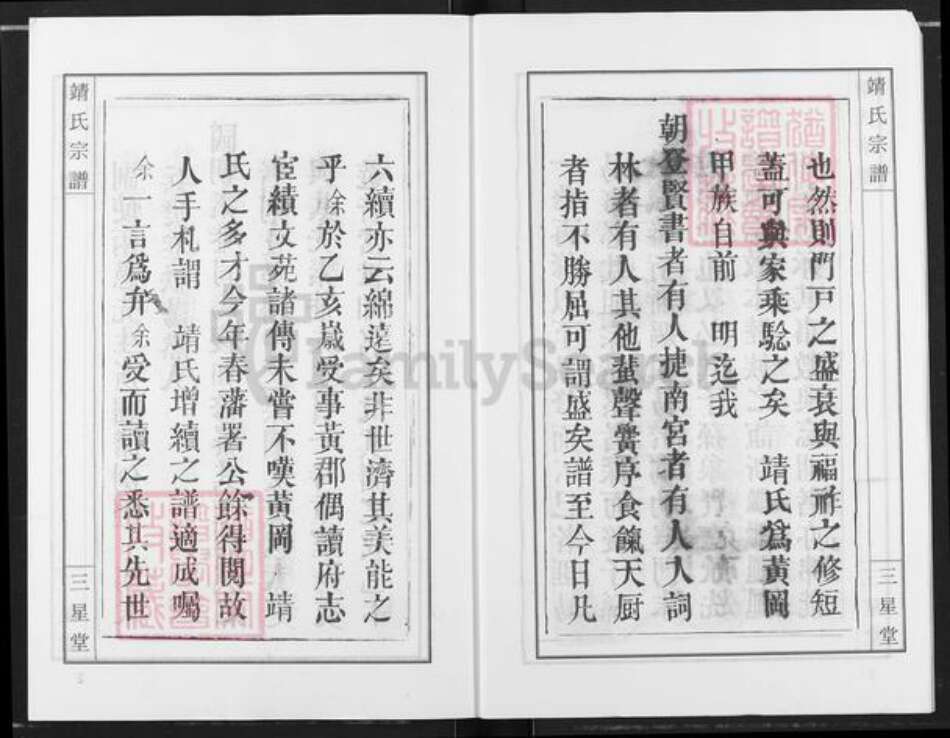 靖氏宗譜
也然則門戸之盛衰與福祚之修短
蓋可與家乘騐之矣 靖氏為黃岡
甲族自前 明迄我
朝登賢書者有人捷南宮者有人入詞
林者有人其他蜚聲黌序食餼天厨
者指不勝屈可謂盛矣譜至今日凡
三星堂
靖氏宗譜
六續亦云綿遠矣非世濟其美能之
乎余於乙亥嵗受事黃郡偶讀府志
宦績文苑諸傳未嘗不嘆黃岡 靖
氏之多才今年春藩署公餘得閱故
人手札謂 靖氏增續之譜適成囑
余一言爲弁余受而讀之悉其先世
三星堂
FamilySearch